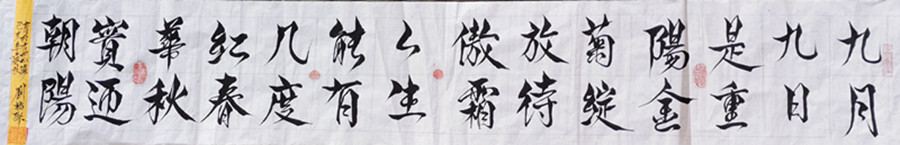 九月
九日
是重
陽金
菊綻
放待
傲霜
人生
能有
几度
红春
華秋
實迎
朝陽